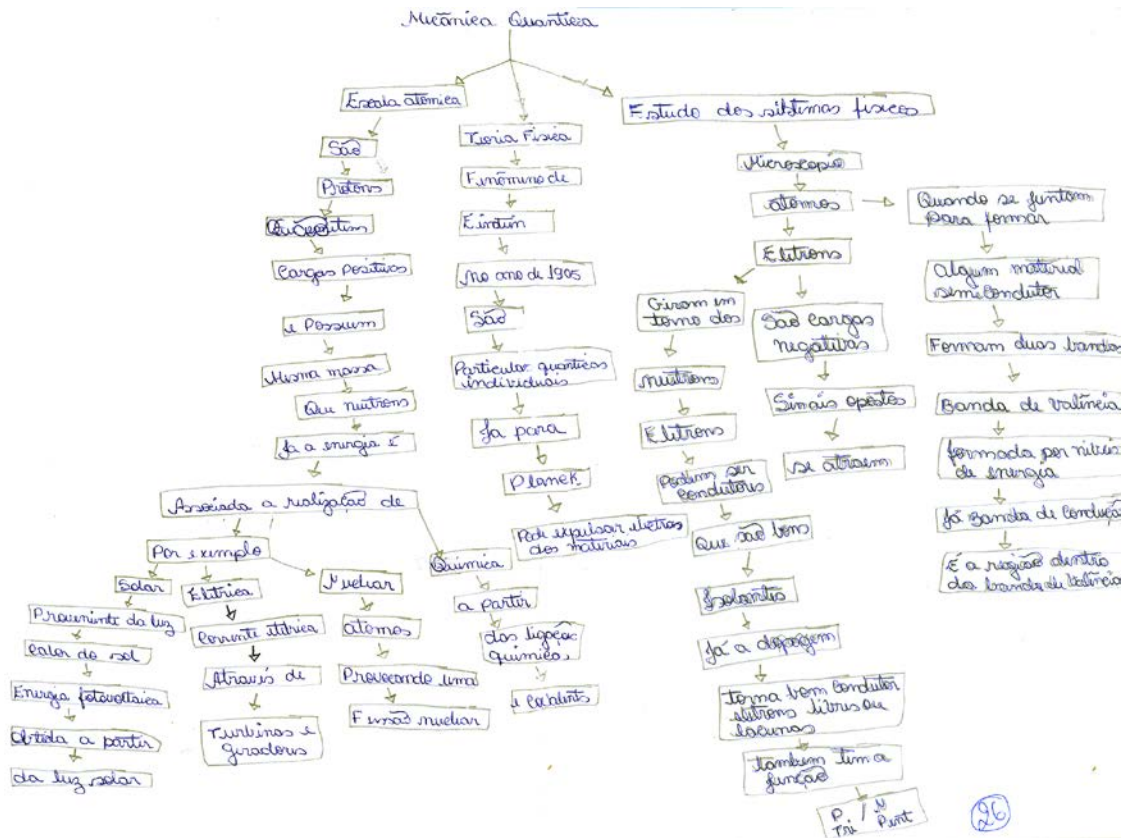 Mecânica Quantica
Escala atômica
São
Protons
Cargas Positivas
e Possuem
Mesma massa
Que neutrons
Ja a energia é
Associada a realização de
Por exemplo
Solar
Proveniente da luz
Calor do sol
Energia fotovoltaica
Obtida a partir
da luz solar
Elétrica
Corrente elétrica
Através de
Turbinas e
geradores
Nuclear
atomos
Provocando uma
Fusão nuclear
Química
a partir
das ligação
químicas,
e covalentes
Teoria Fisica
Fenômeno de
Einstein
No ano de 1905
São
Particular quânticas
individuais
Ja para
Planck
Pode expulsar eletros
dos materiais
Estudo dos sistemas físicos
Microscopio
atomos
Eletrons
Giram em
torno dos
neutrons
Eletrons
Podem ser
condutores
Que são bons
Isolantes
Já a dopagem
torna bom condutor
eletrons livres ou
lacunas
tambem tem a
função
P / N
Tri Pent
São cargas
negativas
Sinais opostos
se atraem
Quando se juntam
Para formar
Algum material
semicondutor
Formam duas bandas
Banda de valência
formada por níveis
de energia
Já Banda de condução
É a região dentro
da banda de valência
26